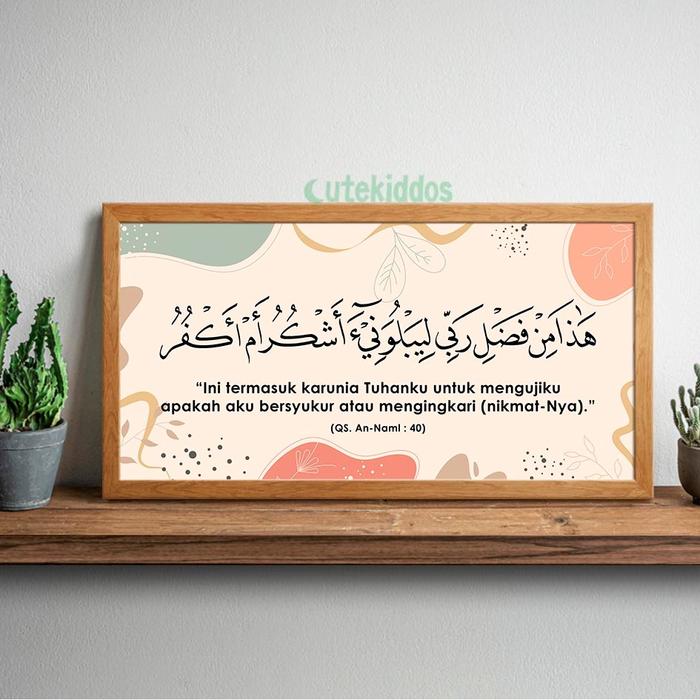 Cutekiddos
هَٰذَا مِنْ فَضْلِ رَبِّي لِيَبْلُوَنِيٓ ءَأَشْكُرُ أَمْ أَكْفُرُ
“Ini termasuk karunia Tuhanku untuk mengujiku
apakah aku bersyukur atau mengingkari (nikmat-Nya).”
(QS. An-Naml : 40)